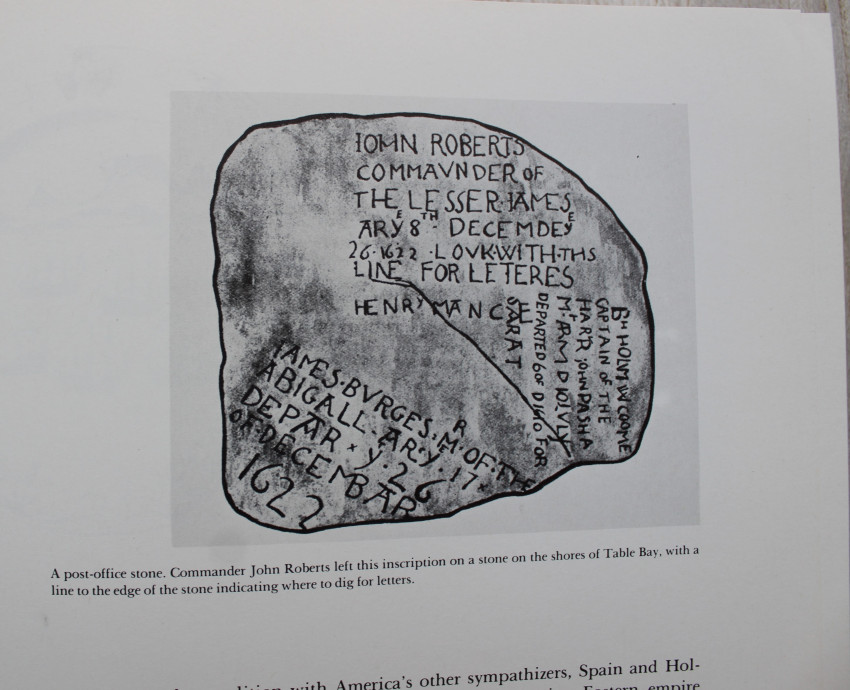 IOHN ROBERTS
COMMAVNDER OF
THE LESSER·IAMES
ARY E 8 TH · DECEMDEY E
26·1622 ·LOVK·WITH·THS
LINE FOR LETERES
HENRY MAN CE
SARAT
DEPARTED 6 OF D 1610 FOR
HARR JOHN DASHA
CAPTAIN OF THE
HOLM
IAMES·BVRGES·M R·OF·THE
ABIGALL·AR·Y·17·
DEPAR·Y·26
OF DECEMBAR
1622
A post-office stone. Commander John Roberts left this inscription on a stone on the shores of Table Bay, with a
line to the edge of the stone indicating where to dig for letters.
with America's other sympathizers, Spain and Hol-
Eastern empire